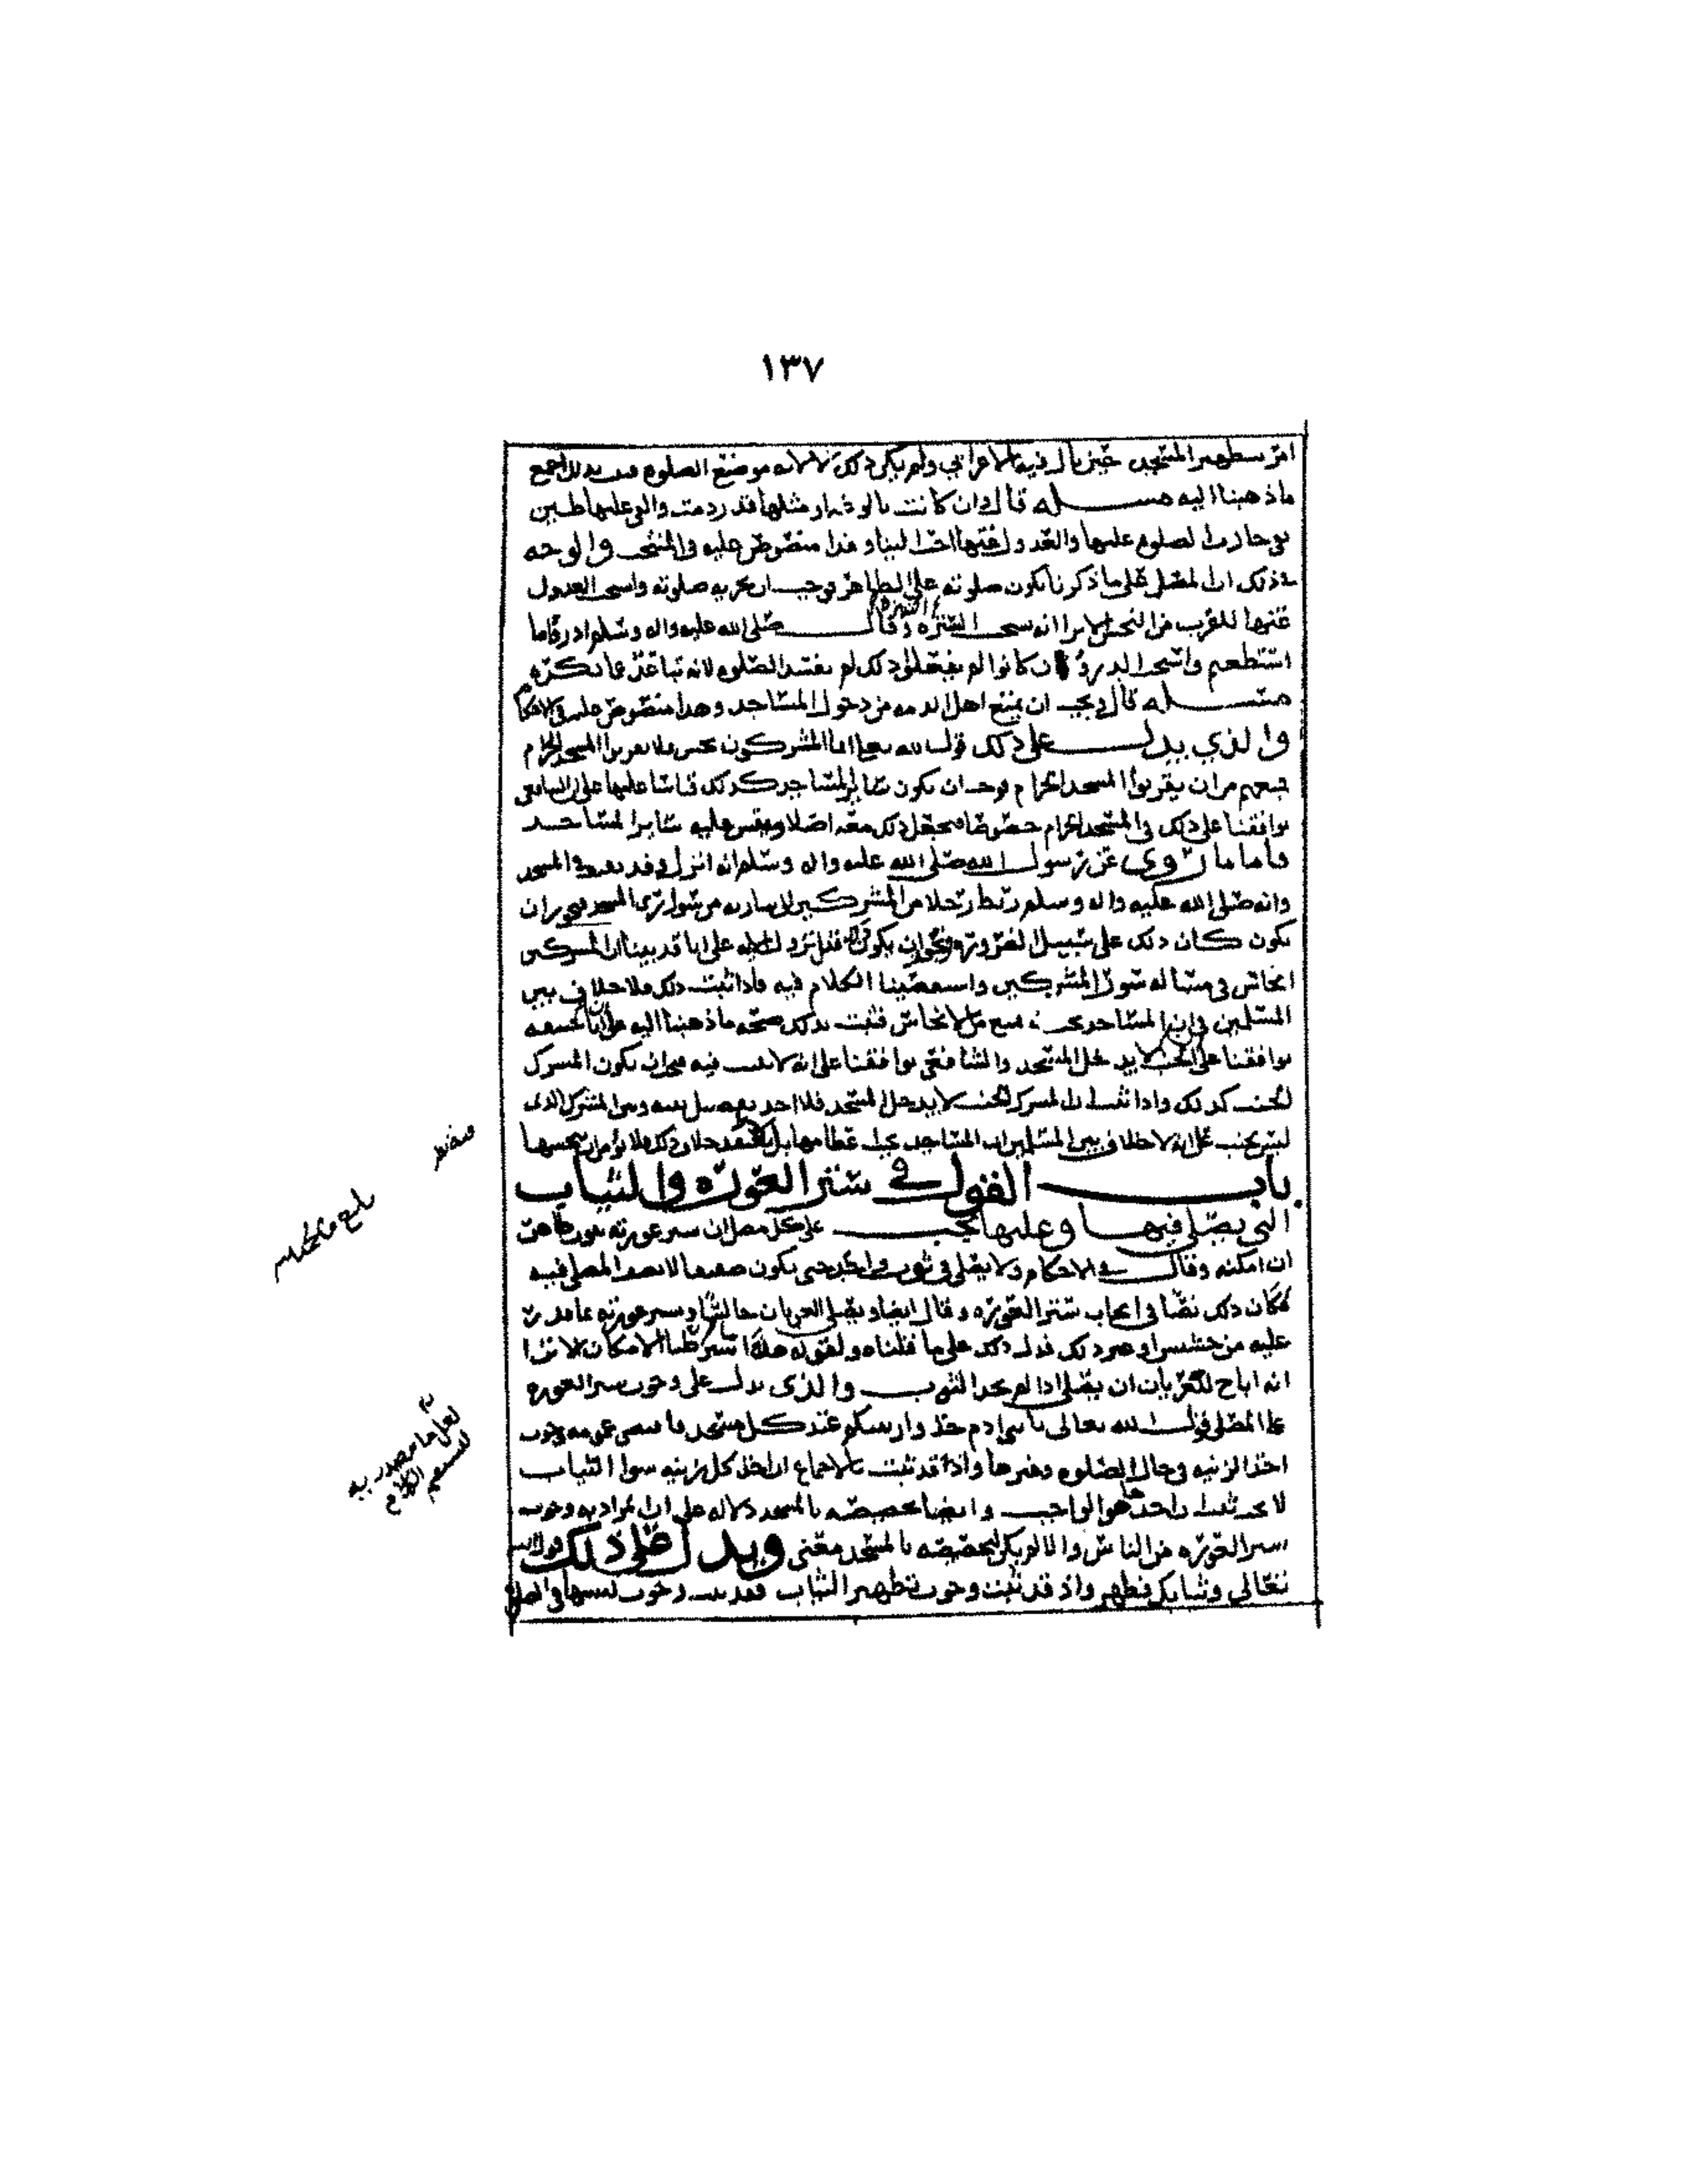 ١٣٧
امر بتطهير المسجد حين بال فيه الاعرابي ولم يكن ذلك الا لانه موضع الصلوه
ما ذهبنا اليه مسله قال وان كانت بالوعه او مثلها قد ردمت والقي عليها طين
جازت الصلوه عليها والبعد وهذا منصوص عليه في المنتخب والوجه
في ذلك ان المصلي على ما ذكرنا تكون صلوته على الطاهر فوجب ان يجزيه صلوته واستحب العدول
عنها للقرب من النجس الا ترا انه يستحب التنزه وقال صلى الله عليه واله وسلم ادرؤا ما
استطعتم واستحب الدرؤ وان كانوا لو لم يفعلوا ذلك لم تفسد الصلوه لانه تباعد عما يكره
مسله قال ويجب ان يمنع اهل الذمه من دخول المساجد وهذا منصوص عليه في الاحكام
والذي يدل على ذلك قول الله تعالى انما المشركون نجس فلا يقربوا المسجد الحرام
فمنعهم من ان يقربوا المسجد الحرام فوجب ان يكون سائر المساجد كذلك قياسا عليها على ان الشافعي
يوافقنا على ذلك في المسجد الحرام خصوصا فنجعل ذلك معه اصلا ونقيس عليه سائر المساجد
فاما ما روي عن رسول الله صلى الله عليه واله وسلم انه انزل وفد ثقيف في المسجد
وانه صلى الله عليه واله وسلم ربط رجلا من المشركين الى ساريه من سواري المسجد فيجوز ان
يكون كان ذلك على سبيل الضروره ويجوز ان يكون كان قبل نزول الايه على انا قد بينا ان المشركين
انجاس في مسأله سؤر المشركين واستقصينا الكلام فيه فاذا ثبت ذلك فلا خلاف بين
المسلمين في ان المساجد يجب ان تمنع من الانجاس فثبت بذلك صحه ما ذهبنا اليه على ان ابا حنيفه
يوافقنا على ان الجنب لا يدخل المسجد والشافعي يوافقنا على انه لا يلبث فيه فيجب ان يكون المشرك
الجنب كذلك واذا ثبت ان المشرك الجنب لا يدخل المسجد فلا احد يفصل بينه وبين المشرك الذي
ليس بجنب على انه لا خلاف بين المسلمين ان المساجد يجب
باب القول في ستر العوره والثياب
التي يصلى فيها وعليها يجب على كل مصل ان يستر عورته بثوب طاهر
ان امكنه وقال في الاحكام ولا يصلى في ثوب واحد حتى يكون صفيقا لا يصف المصلي فيه
فكان ذلك نصا في ايجاب ستر العوره وقال ايضا ويصلي العريان جالسا ويستر عورته بما قدر
عليه من حشيش او غير ذلك فدل ذلك على ما قلناه ولقوله هذا شرطنا الامكان الا ترا
انه اباح للعريان ان يصلي اذا لم يجد الثوب والذي يدل على وجوب ستر العوره
على المصلي قول الله تعالى يا بني ادم خذوا زينتكم عند كل مسجد فاقتضى عمومه وجوب
اخذ الزينه في حال الصلوه وغيرها واذا قد ثبت بالاجماع ان اخذ كل زينه سوا الثياب
لا يجب ثبت ان اخذها هو الواجب وايضا تخصيصه بالمسجد دلاله على ان المراد به وجوب
ستر العوره من الناس والا لم يكن لتخصيصه بالمسجد معنى ويدل على ذلك قول الله
تعالى وثيابك فطهر واذ قد ثبت وجوب تطهير الثياب فقد ثبت وجوب لبسها في الصلوه
لعل ما مصدريه
ليستقيم الكلام